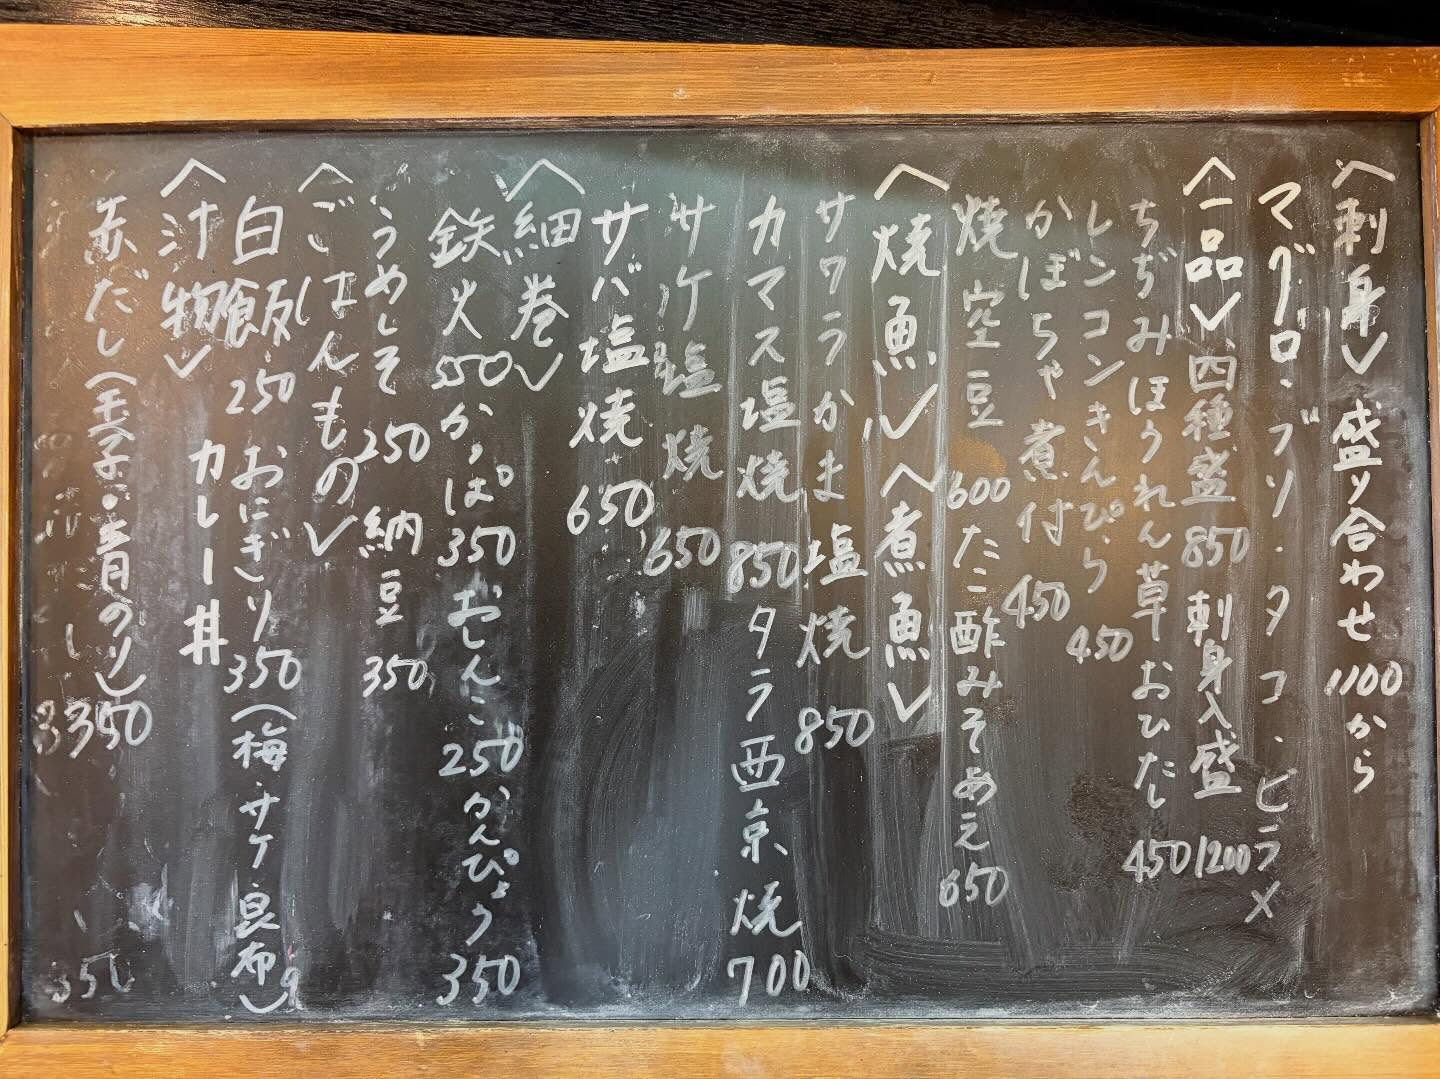 〈刺身〉盛り合わせ 1100から
マグロ・ブリ・タコ・ヒラメ
〈一品〉四種盛 850 刺身入盛 1200
ちぢみほうれん草 おひたし 450
レンコンきんぴら 450
かぼちゃ煮付 450
焼空豆 600 たこ酢みそあえ 650
〈焼魚〉〈煮魚〉
サワラかま塩焼 850
カマス塩焼 850 タラ西京焼 700
サケ塩焼 650
サバ塩焼 650
〈細巻〉
鉄火 550 かっぱ 350 おしんこ 250 かんぴょう 350
うめしそ 250 納豆 350
〈ごはんもの〉
白飯 250 おにぎり 350(梅・サケ・昆布)
カレー丼
〈汁物〉
赤だし(玉子・青のり) 350
350